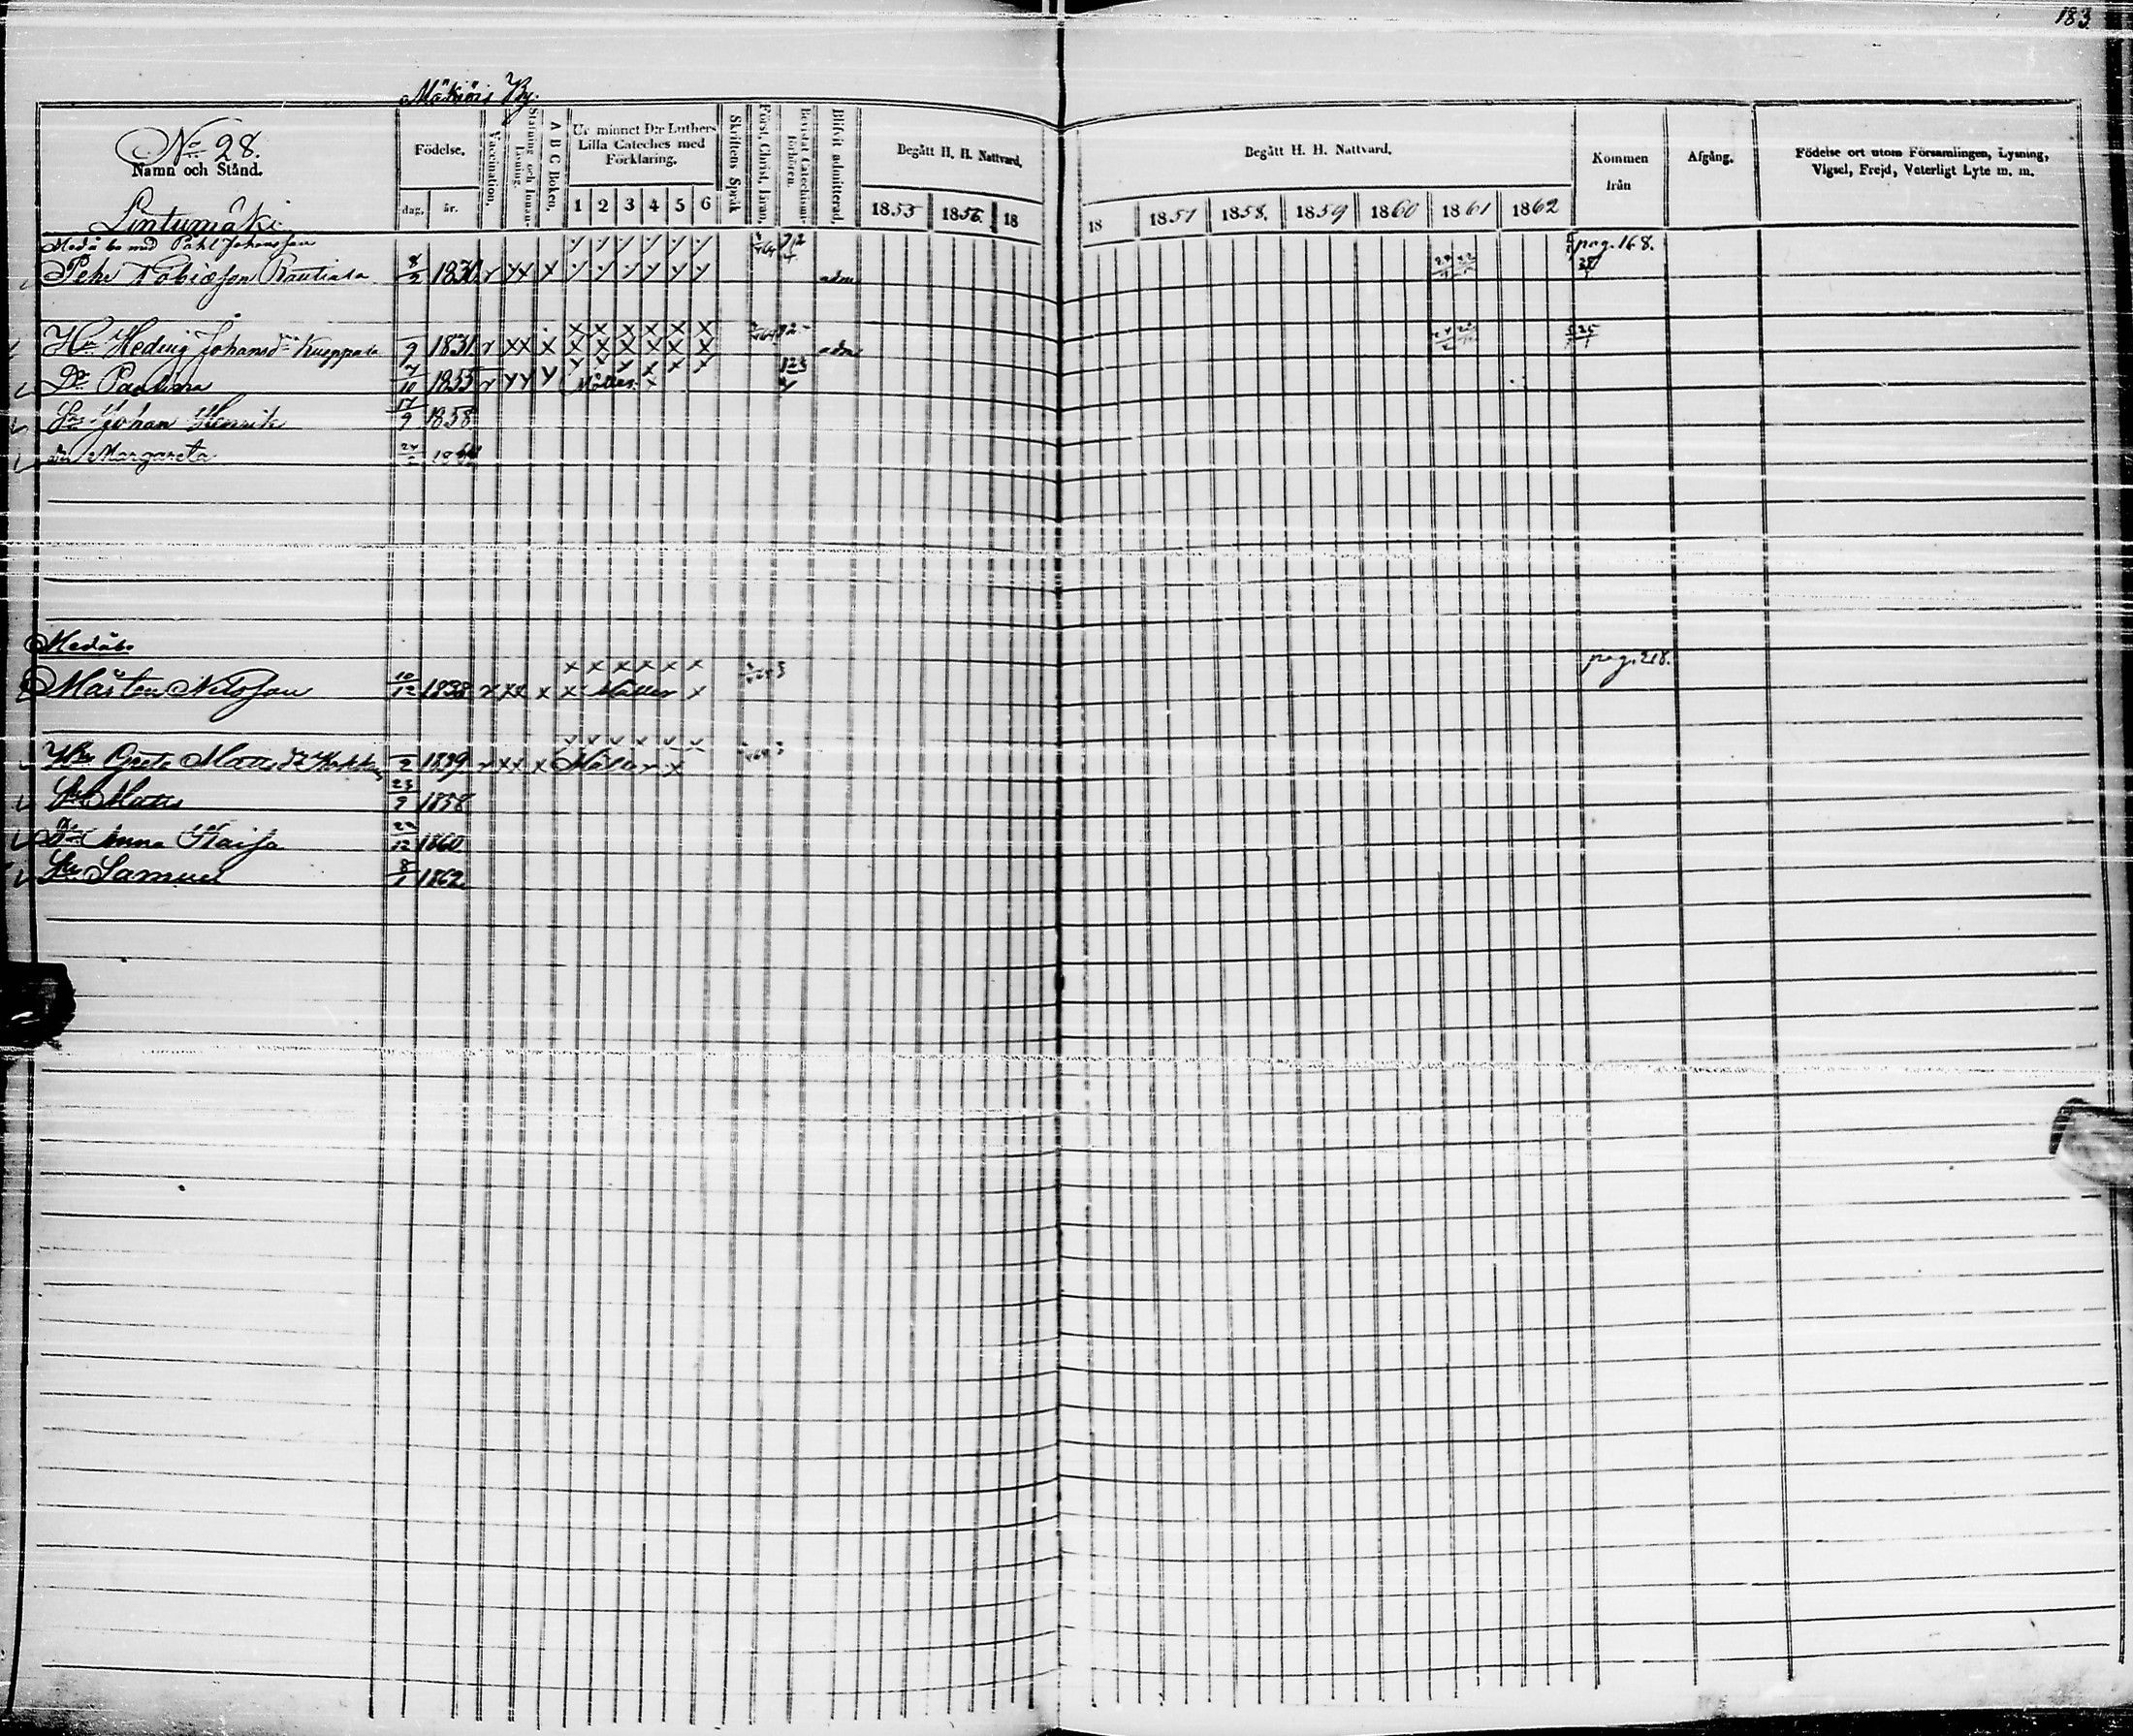 183
Mäkiöis By.
No 28.
Namn och Stånd.
Födelse.
dag. år.
Vaccination.
Stafning och Innan-läsning.
A B C Boken.
Ur minnet D:r Luthers Lilla Cateches med Förklaring.
1 2 3 4 5 6
Skriftens Språk
Först. Christ. läran.
Bevistat Catechismi-förhören.
Blifvit admitterad.
Begått H. H. Nattvard.
1855 1856. 18
Begått H. H. Nattvard.
18 1857 1858. 1859 1860 1861 1862
Kommen från
Afgång.
Födelse ort utom Församlingen, Lysning, Vigsel, Frejd, Veterligt Lyte m. m.
Lintumäki
Medåbo med Påhl Johansson pag. 168.
Pehr Tobiasson 8/2 1830 adm
Hu Hedvig Johansdr 9 1831 adm
Dr Paulina 10 1855
Sn Johan Henrik 17/9 1858
Dr Margareta
Medåbo
pag. 218.
Mårten Nilsson 10/12 1838
Hu Greta Matts dr 2 1839
Sn Matts 23/9 1858
Dr Anna Kaisa 12 1860
Sn Samuel 8/1 1862